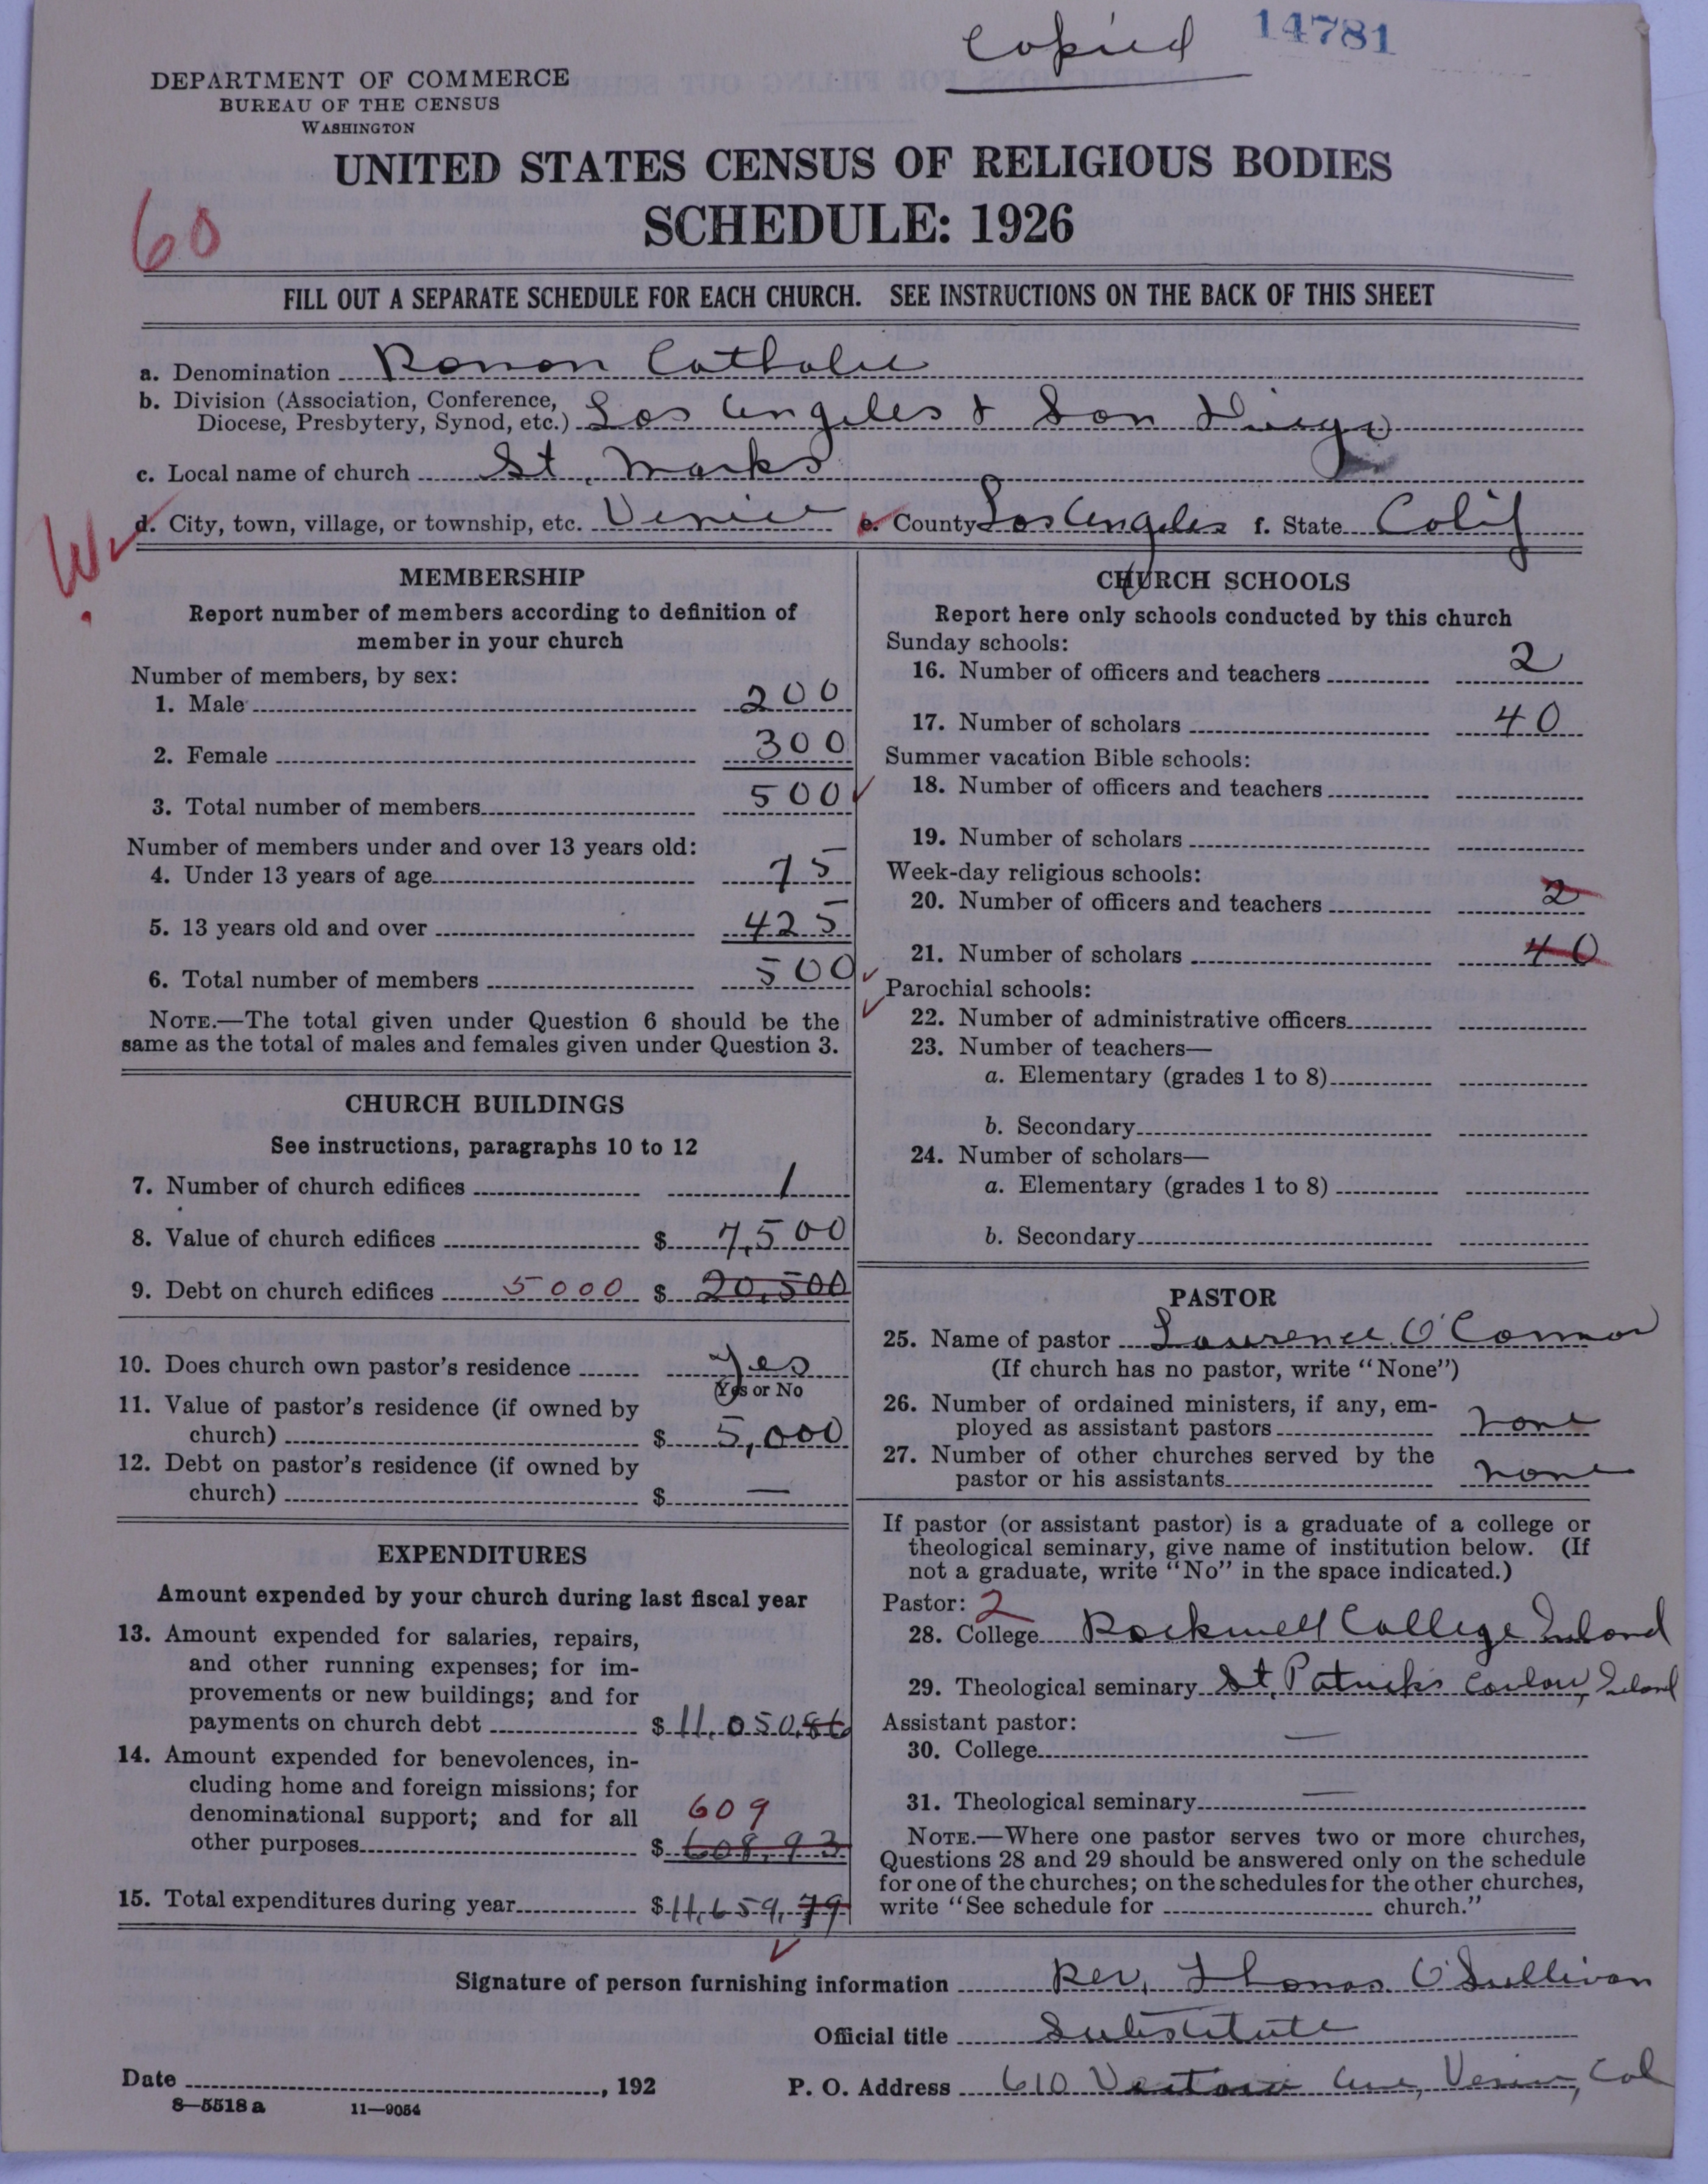 Copied 14781
DEPARTMENT OF COMMERCE
BUREAU OF THE CENSUS
WASHINGTON
UNITED STATES CENSUS OF RELIGIOUS BODIES
SCHEDULE: 1926
60
FILL OUT A SEPARATE SCHEDULE FOR EACH CHURCH. SEE INSTRUCTIONS ON THE BACK OF THIS SHEET
a. Denomination Roman Catholic
b. Division (Association, Conference,
Diocese, Presbytery, Synod, etc.) Los Angeles & San Diego
c. Local name of church St. Marks
d. City, town, village, or township, etc. Venice e. County Los Angeles f. State Calif
MEMBERSHIP
Report number of members according to definition of
member in your church
Number of members, by sex:
1. Male 200
2. Female 300
3. Total number of members 500
Number of members under and over 13 years old:
4. Under 13 years of age 75
5. 13 years old and over 425
6. Total number of members 500
NOTE.—The total given under Question 6 should be the
same as the total of males and females given under Question 3.
CHURCH BUILDINGS
See instructions, paragraphs 10 to 12
7. Number of church edifices 1
8. Value of church edifices $ 7,500
9. Debt on church edifices 5000 $ 20,500
10. Does church own pastor's residence yes
Yes or No
11. Value of pastor's residence (if owned by
church) $ 5,000
12. Debt on pastor's residence (if owned by
church) $ —
EXPENDITURES
Amount expended by your church during last fiscal year
13. Amount expended for salaries, repairs,
and other running expenses; for im-
provements or new buildings; and for
payments on church debt $ 11,050.86
14. Amount expended for benevolences, in-
cluding home and foreign missions; for
denominational support; and for all 609
other purposes $ 608.93
15. Total expenditures during year $ 11,659.79
CHURCH SCHOOLS
Report here only schools conducted by this church
Sunday schools:
16. Number of officers and teachers 2
17. Number of scholars 40
Summer vacation Bible schools:
18. Number of officers and teachers
19. Number of scholars
Week-day religious schools:
20. Number of officers and teachers 2
21. Number of scholars 40
Parochial schools:
22. Number of administrative officers
23. Number of teachers—
a. Elementary (grades 1 to 8)
b. Secondary
24. Number of scholars—
a. Elementary (grades 1 to 8)
b. Secondary
PASTOR
25. Name of pastor Laurence O'Connor
(If church has no pastor, write "None")
26. Number of ordained ministers, if any, em-
ployed as assistant pastors none
27. Number of other churches served by the
pastor or his assistants none
If pastor (or assistant pastor) is a graduate of a college or
theological seminary, give name of institution below. (If
not a graduate, write "No" in the space indicated.)
Pastor: 2
28. College Rockwell College Ireland
29. Theological seminary St. Patricks Carlow, Ireland
Assistant pastor:
30. College —
31. Theological seminary —
NOTE.—Where one pastor serves two or more churches,
Questions 28 and 29 should be answered only on the schedule
for one of the churches; on the schedules for the other churches,
write "See schedule for church."
Signature of person furnishing information Rev. Thomas O'Sullivan
Official title Substitute
Date , 192 P. O. Address 610 Ave, Venice, Cal
8—5518 a 11—9054